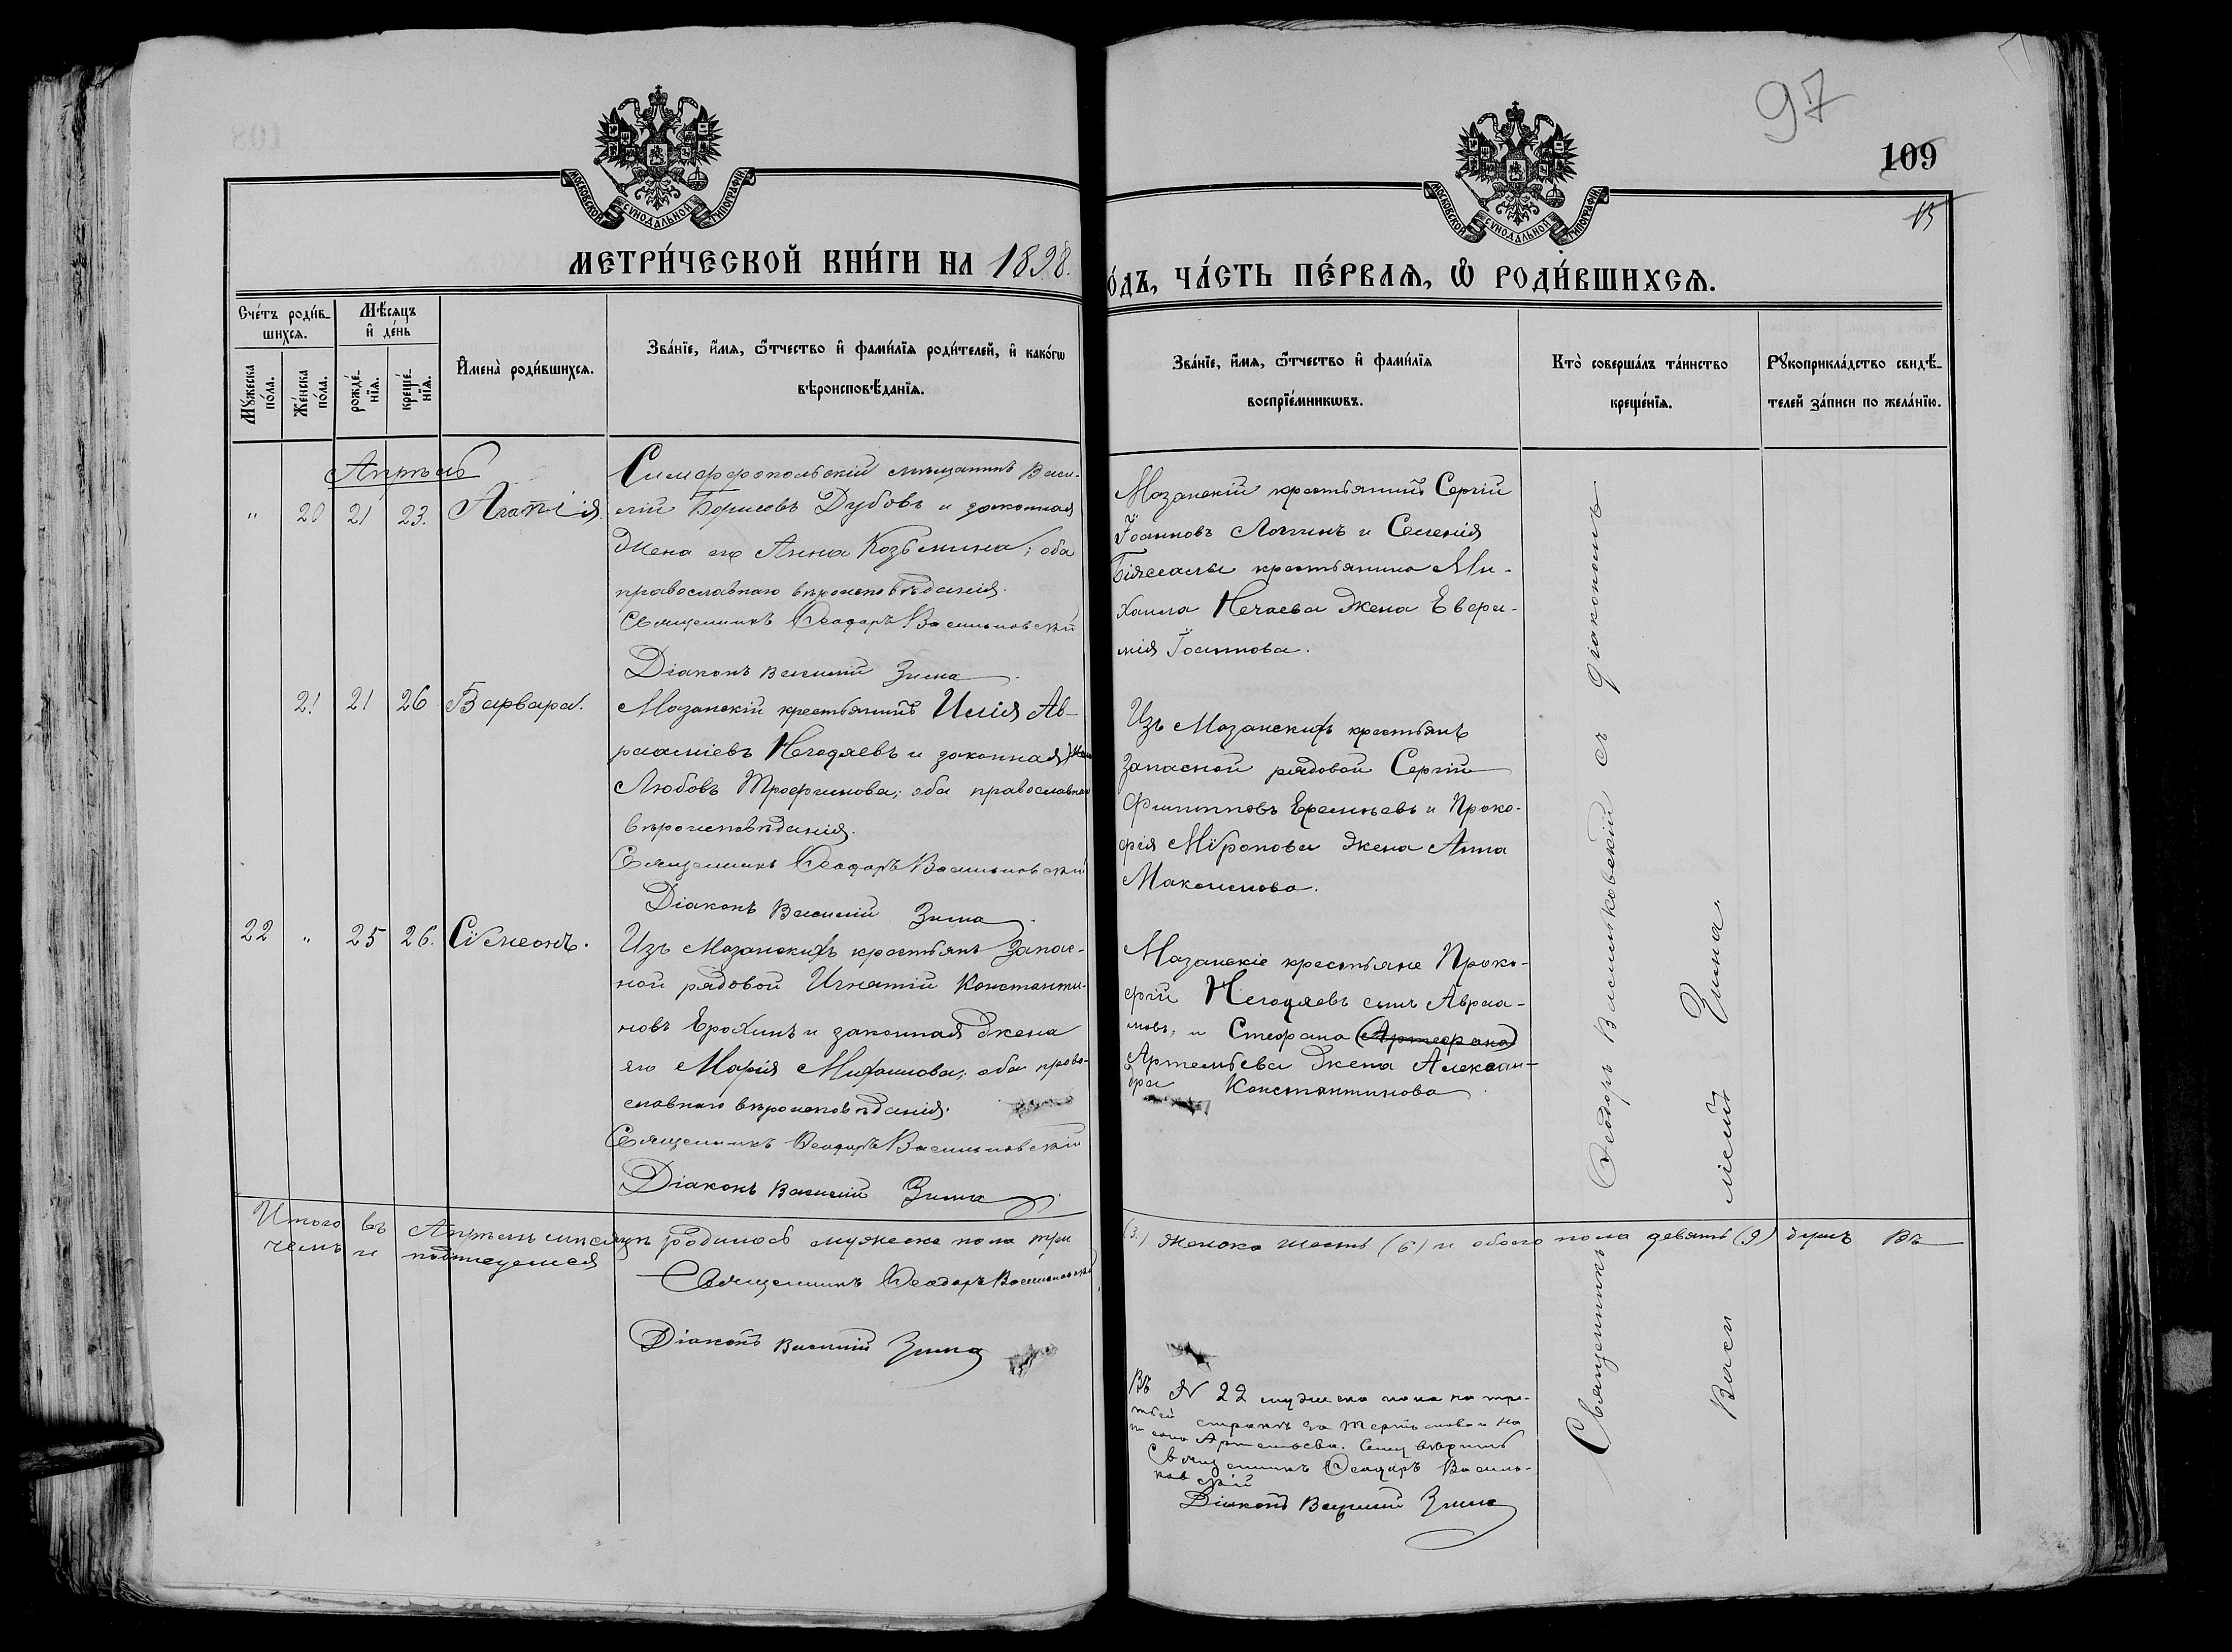 97
109
15
МОСКОВСКОЙ СѴНОДАЛЬНОЙ ТИПОГРАФІИ
МОСКОВСКОЙ СѴНОДАЛЬНОЙ ТИПОГРАФІИ
МЕТРИ́ЧЕСКОЙ КНИ́ГИ НА 1898.
О́ДЪ, ЧА́СТЬ ПЕ́РВАѦ, Ѽ РОДИ́ВШИХСѦ.
Сче́тъ роди́в-
шихсѧ.
Мꙋ́жеска по́ла.
Же́нска по́ла.
Мѣ́сяцъ
и҆ де́нь
рожде́-
нїѧ.
креще́-
нїѧ.
И҆мена̀ роди́вшихсѧ.
Зва́нїе, и҆́мѧ, ѻ҆́тчество и҆ фами́лїѧ роди́телей, и҆ како́гѡ
вѣроисповѣ́данїѧ.
Зва́нїе, и҆́мѧ, ѻ҆́тчество и҆ фами́лїѧ
воспрїе́мникѡвъ.
Кто̀ соверша́лъ та́инство
креще́нїѧ.
Рꙋкоприкла́дство свидѣ́-
телей за́писи по жела́нїю.
Апрѣль
" 20 21 23. Агапія.
Симферопольскій мѣщанинъ Васи-
лій Борисовъ Дубовъ и законная
жена его Анна Козьмина; оба
православнаго вѣроисповѣданія.
Священникъ Ѳеодоръ Васильковскій
Діаконъ Василій Зима
Мазанскій крестьянинъ Сергій
Іоанновъ Логинъ и Селенія
Біясалы крестьянина Ми-
хаила Нечаева жена Евфи-
мія Іоаннова.
21 21 26 Варвара.
Мазанскій крестьянинъ Илія Ав-
рааміевъ Негодяевъ и законная жена
Любовь Трофимова; оба православнаго
вѣроисповѣданія.
Священникъ Ѳеодоръ Васильковскій
Діаконъ Василій Зима
Изъ Мазанскихъ крестьянъ
запасной рядовой Сергій
Филипповъ Еремѣевъ и Проко-
фія Мѵронова жена Анна
Максимова.
22 " 25 26. Сѵмеонъ.
Изъ Мазанскихъ крестьянъ запас-
ной рядовой Игнатій Константи-
новъ Ерохинъ и законная жена
его Марія Михаилова; оба право-
славнаго вѣроисповѣданія.
Священникъ Ѳеодоръ Васильковскій
Діаконъ Василій Зима
Мазанскіе крестьяне Проко-
фій Негодяевъ сынъ Авраа-
мовъ, и Стефана (Артефана)
Артемьева жена Алексан-
дра Константинова
Священникъ Ѳеодоръ Васильковскій съ діакономъ
Василіемъ Зима.
Итого въ Апрѣлѣ мѣсяцѣ родилось мужеска пола три
(3.) женска шесть (6) и обоего пола девять (9) душъ Въ
чемъ и подписуемся
Священникъ Ѳеодоръ Васильковскій
Діаконъ Василій Зима
Въ № 22 мужеска пола на тре-
тьей
Артемьева.
Священникъ Ѳеодоръ Василь-
ковскій
Діаконъ Василій Зима